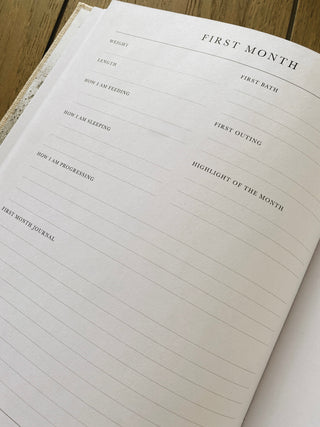 FIRST MONTH
WEIGHT
LENGTH
HOW I AM FEEDING
HOW I AM SLEEPING
HOW I AM PROGRESSING
FIRST BATH
FIRST OUTING
HIGHLIGHT OF THE MONTH
FIRST MONTH JOURNAL